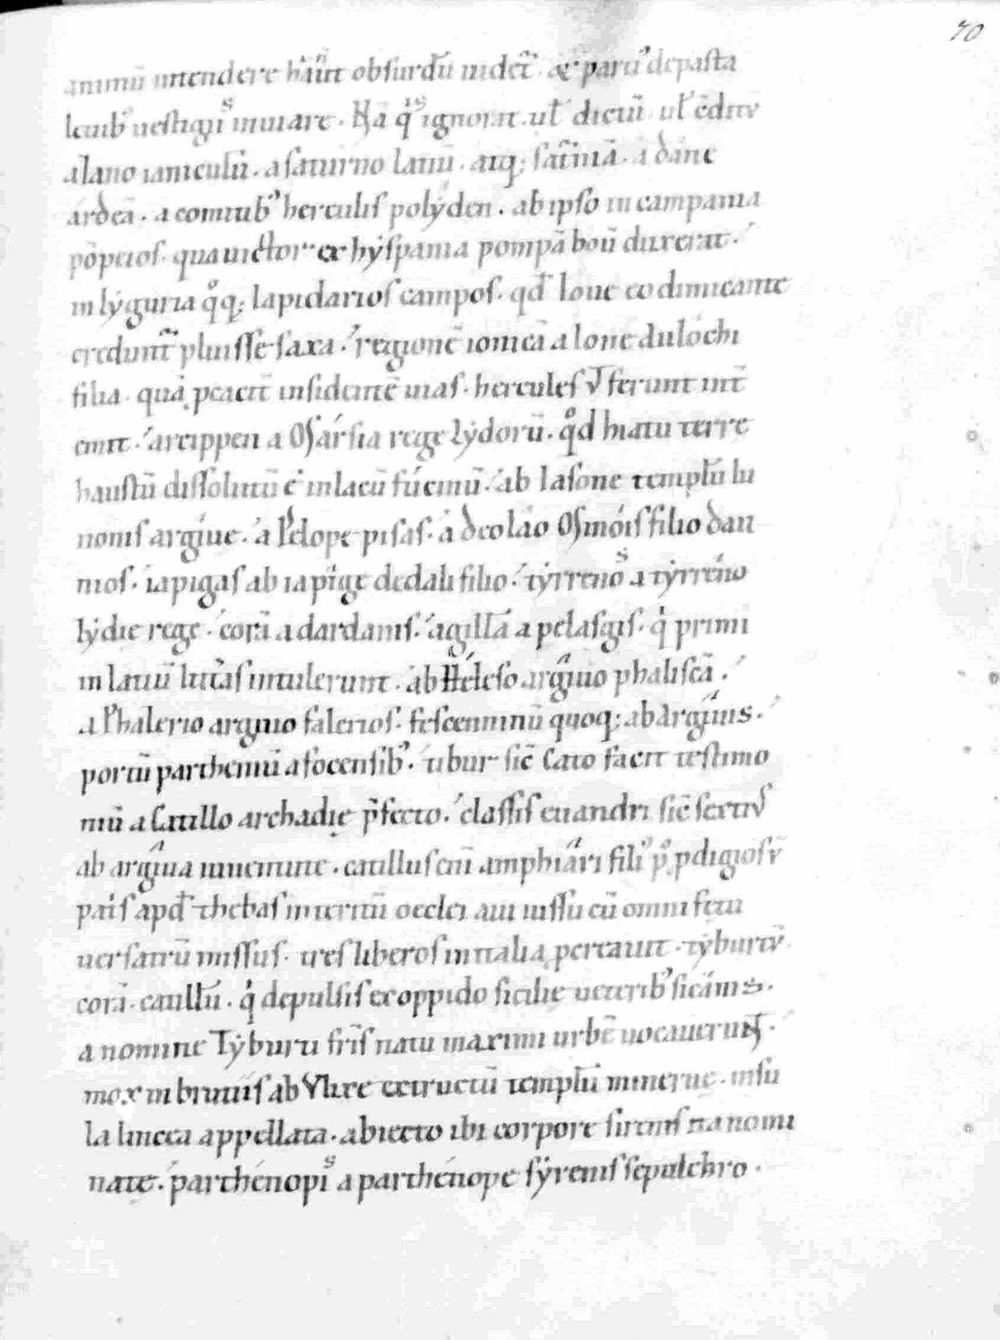 70
animū intendere haut obsurdū uidet̄ & parū depasta
leuib; uestigiis innare. Nā q̇s ignorat. ul̄ dictū ul̄ c̄ditū
a Iano ianiculū. a saturno latiū. atq; sat̄niā. a dane
ardeā. a comitib; herculis polyden. ab ipso in campania
pōpeios. qua uictor ex hyspania pompā boū duxerat.
in lyguria q̊q; lapidarios campos. qd̄ Ioue eo dimicante
credunt̄ pluisse saxa. regionē ionicā a Ione áulochi
filia. quā ꝓcacit̄ insidentē uias. hercules ut ferunt int̄
emit. arcippen a Marsia rege lydorū. q̊d hiatu terre
haustū dissolutū ē inlacū fúcinū. ab Iasone templū Iu
nonis argiue. a Pelope pisas. á deoláo Minóis filio dau
nios. iapigas ab iapige dedali filio. tyrrenos a tyrréno
lydie rege. corā a dardanis. agillā a pelasgis. qi primi
in latiū litt̄as intulerunt. ab Háleso argiuo phaliscā.
a Phalerio argiuo falerios. fescenninū quoq; ab Argiuis.
portū partheniū a focensib;. tibur sic̄ Cato facit testimo
niū a Catillo archadię p̄fecto. classis euandri sic̄ sextius
ab argiua iuuentute. catillus eni amphiári fili; p; ꝓdigiosū
pat̄s apd̄ thebas interitū oeclei aui iussu cū omni fetu
uersacrū missus. tres liberos in italia ꝓcreauit. tyburtū
corā. catillū. qi depulsis ex oppido sicilię ueterib; sicánis.
a nomine Tyburti fr̄is natu maximi urbē uocauerunt.
mox in brutiis ab Ulixe extructū templū minerue. insu
la lincea appellata. abiecto ibi corpore sirenis ita nomi
nate. parthénopis a parthénope syrenis sepulchro.